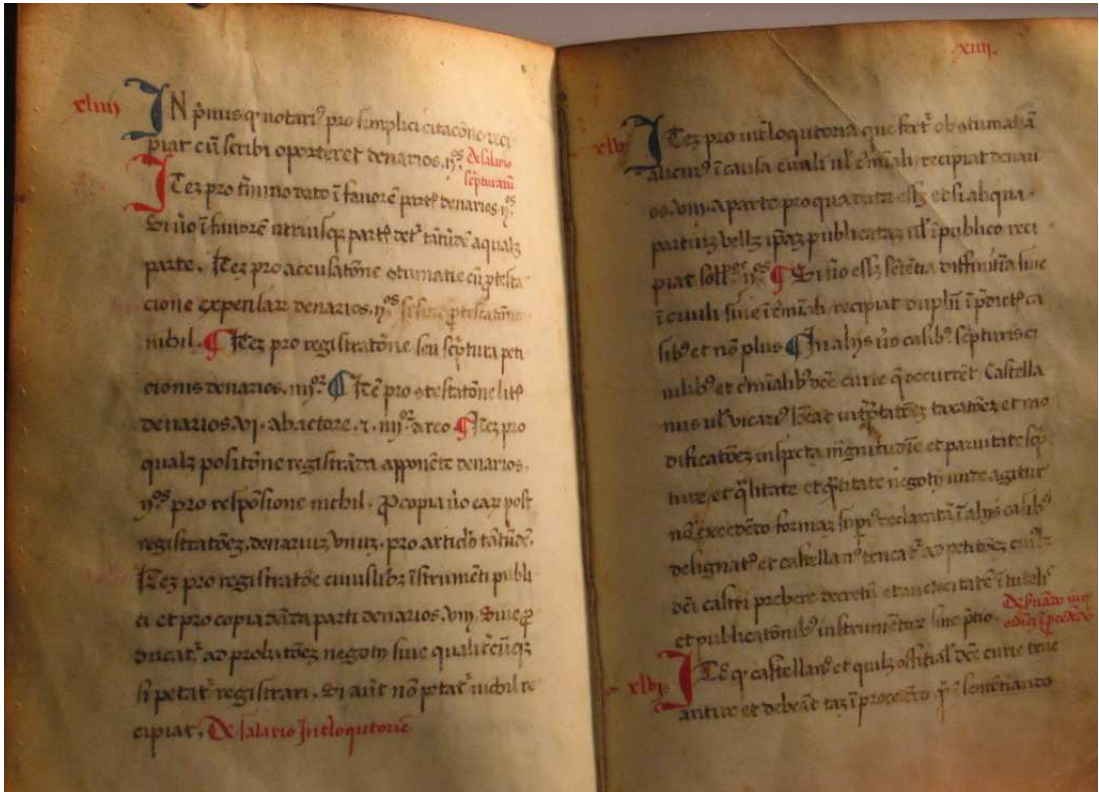 xliiii
IN p̄mus q notari᾽ pro simplici citacōne reci
piat cū scribi oporteret denarios. ij.os De salario
scripturarū
ITez pro t̄mino dato ī favorē part᾽ denarios ij.os
Si ṽo ī favorē utriusq part᾽ det᾽ tātūdē a qualz
parte. Itez pro acusatōne
cione expensar denarios. ij.os
nichil. ¶ Itez pro registratōne seu sc̄ptura peti
cionis denarios. iiij.or ¶ Itē pro 9testatōne lit᾽
denarios. vj. ab actore. 7. iiij.or a reo ¶ Itez pro
qualz positōne registrāda apponēte denarios.
ij.os pro respōsione nichil. Pro copia ṽo ear post
registratōez. denariuz vnuz. pro articl᾽o tātūdē.
Itez pro registratōe cuiuslibz īstrumēti publi
ci et pro copia dāda parti denarios. viij. sive pro
ducat᾽ ad probatōez negotij sive qualit᾽cūqz
si petat᾽ registrari. Si aūt nō petat᾽ nichil re
cipiat. De salario Int᾽loqutorie
xiiij.
xlv
ITez pro int᾽loqutoria que fert᾽
alicui᾽ ī causa civili ul᾽ c᾽mīali. recipiat denari
os. viij. a parte pro qua data esz et si ab qua
partiuz vellz ip̄az publicataz ul᾽ ī publico reci
piat soll᾽.os ij.os ¶ Si ṽo esz sētētia diffinitīa sive
ī civili sive ī c᾽mīali. recipiat duplū ī p̄dict᾽ ca
sib᾽ et nō plus ¶ In alijs ṽo casib᾽ sc̄pturis ci
vilib᾽ et c᾽mīalib᾽ dc̄e curie q̄ occurrēt Castella
nus ul᾽ vicari᾽ h᾽eat int᾽p̄tatōez taxatōez et mo
dificatōez inspecta mḡnitudīe et parvitate sc̄p
ture, et q̄litate et q̄titate negotij unde agitur
nō excedēdo formaz sup᾽ declaratā ī alijs casib᾽
designat᾽ et castellan᾽ teneat᾽ ad petitōez cui᾽lz
dc̄i castri prebere decretū et auctoritatē ī tutel᾽
et publicatōnib᾽ instrumētor sine p̄tio.
xlvi
ITē q castellan᾽ et quilz offitial᾽ dc̄e curie tene
antur et debeāt taz ī procedēdo q̄ ī sententiando